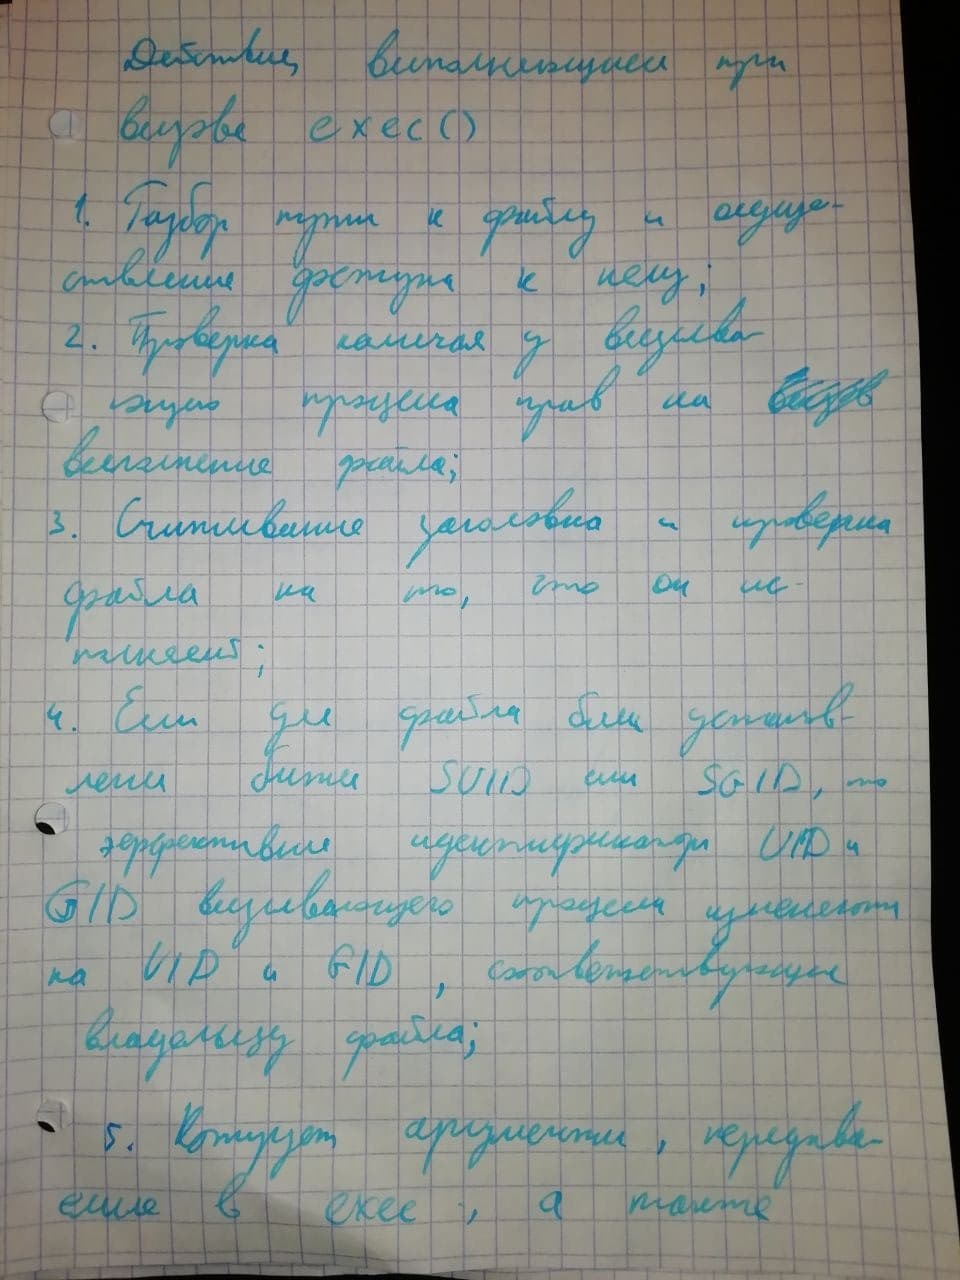 Действия, выполняющиеся при
вызове exec()
1. Разбор пути к файлу и осуще-
ствление доступа к нему;
2. Проверка наличия у вызыва-
ющего процесса прав на
выполнение файла;
3. Считывание заголовка и проверка
файла на то, что он ис-
полняем;
4. Если для файла были установ-
лены биты SUID или SGID, то
эффективные идентификаторы UID и
GID вызывающего процесса изменяются
на UID и GID, соответствующие
владельцу файла;
5. Копирует аргументы, передава-
емые в exec, а также